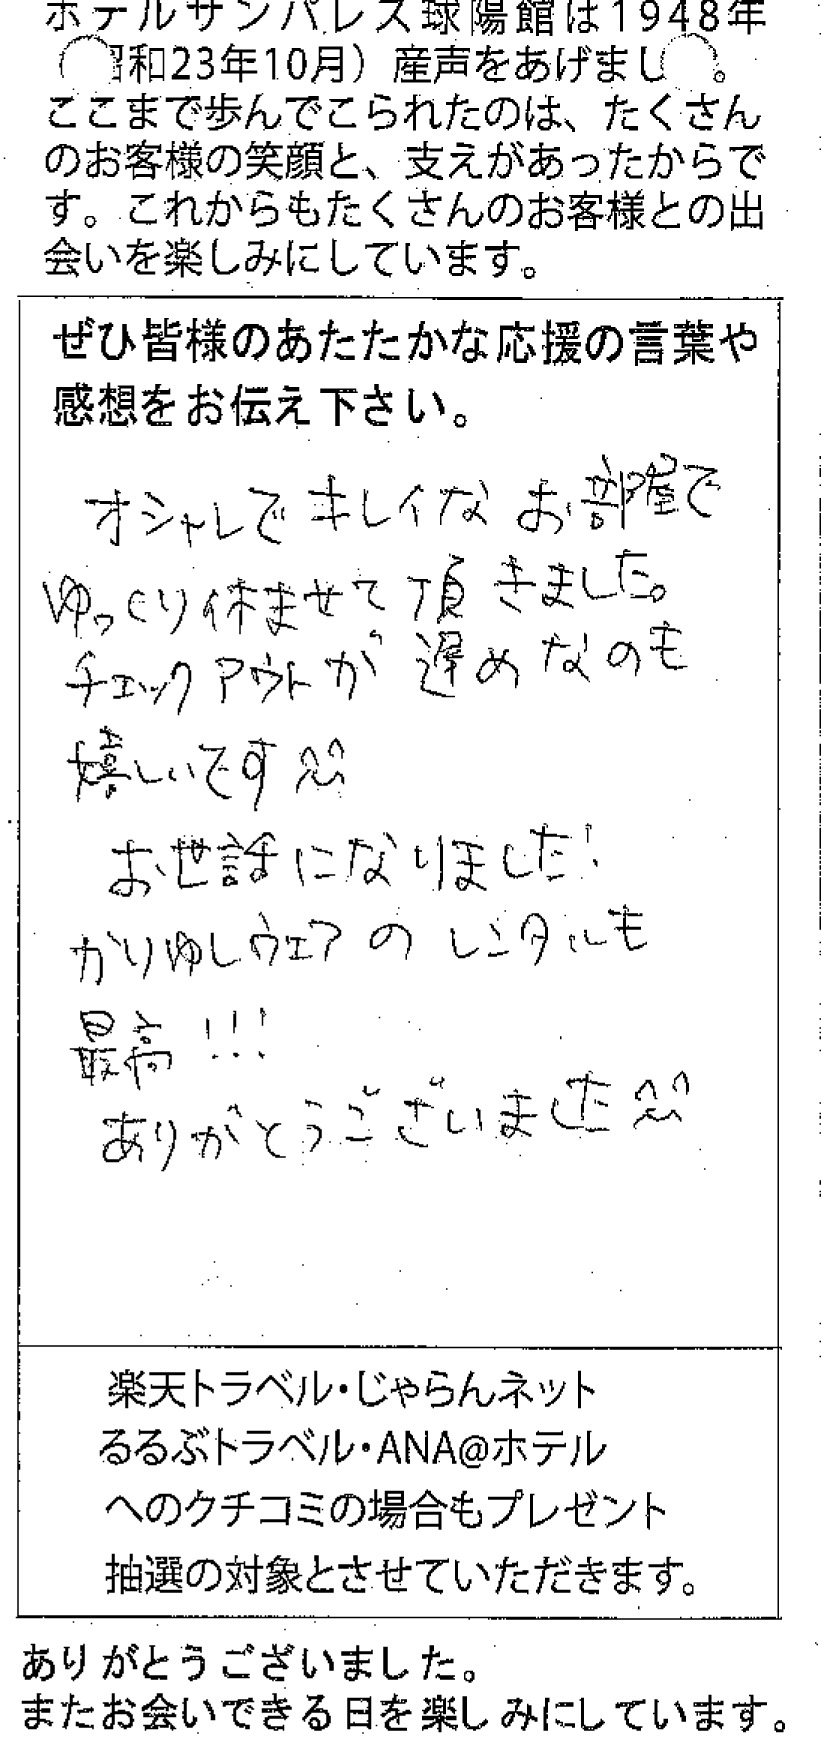 ホテルサンパレス球陽館は1948年
（昭和23年10月）産声をあげまし。
ここまで歩んでこられたのは、たくさん
のお客様の笑顔と、支えがあったからで
す。これからもたくさんのお客様との出
会いを楽しみにしています。
ぜひ皆様のあたたかな応援の言葉や
感想をお伝え下さい。
オシャレでキレイなお部屋で
ゆっくり休ませて頂きました。
チェックアウトが遅めなのも
嬉しいです^^
お世話になりました!
かりゆしウェアのレンタルも
最高!!!
ありがとうございました^^
楽天トラベル・じゃらんネット
るるぶトラベル・ANA@ホテル
へのクチコミの場合もプレゼント
抽選の対象とさせていただきます。
ありがとうございました。
またお会いできる日を楽しみにしています。